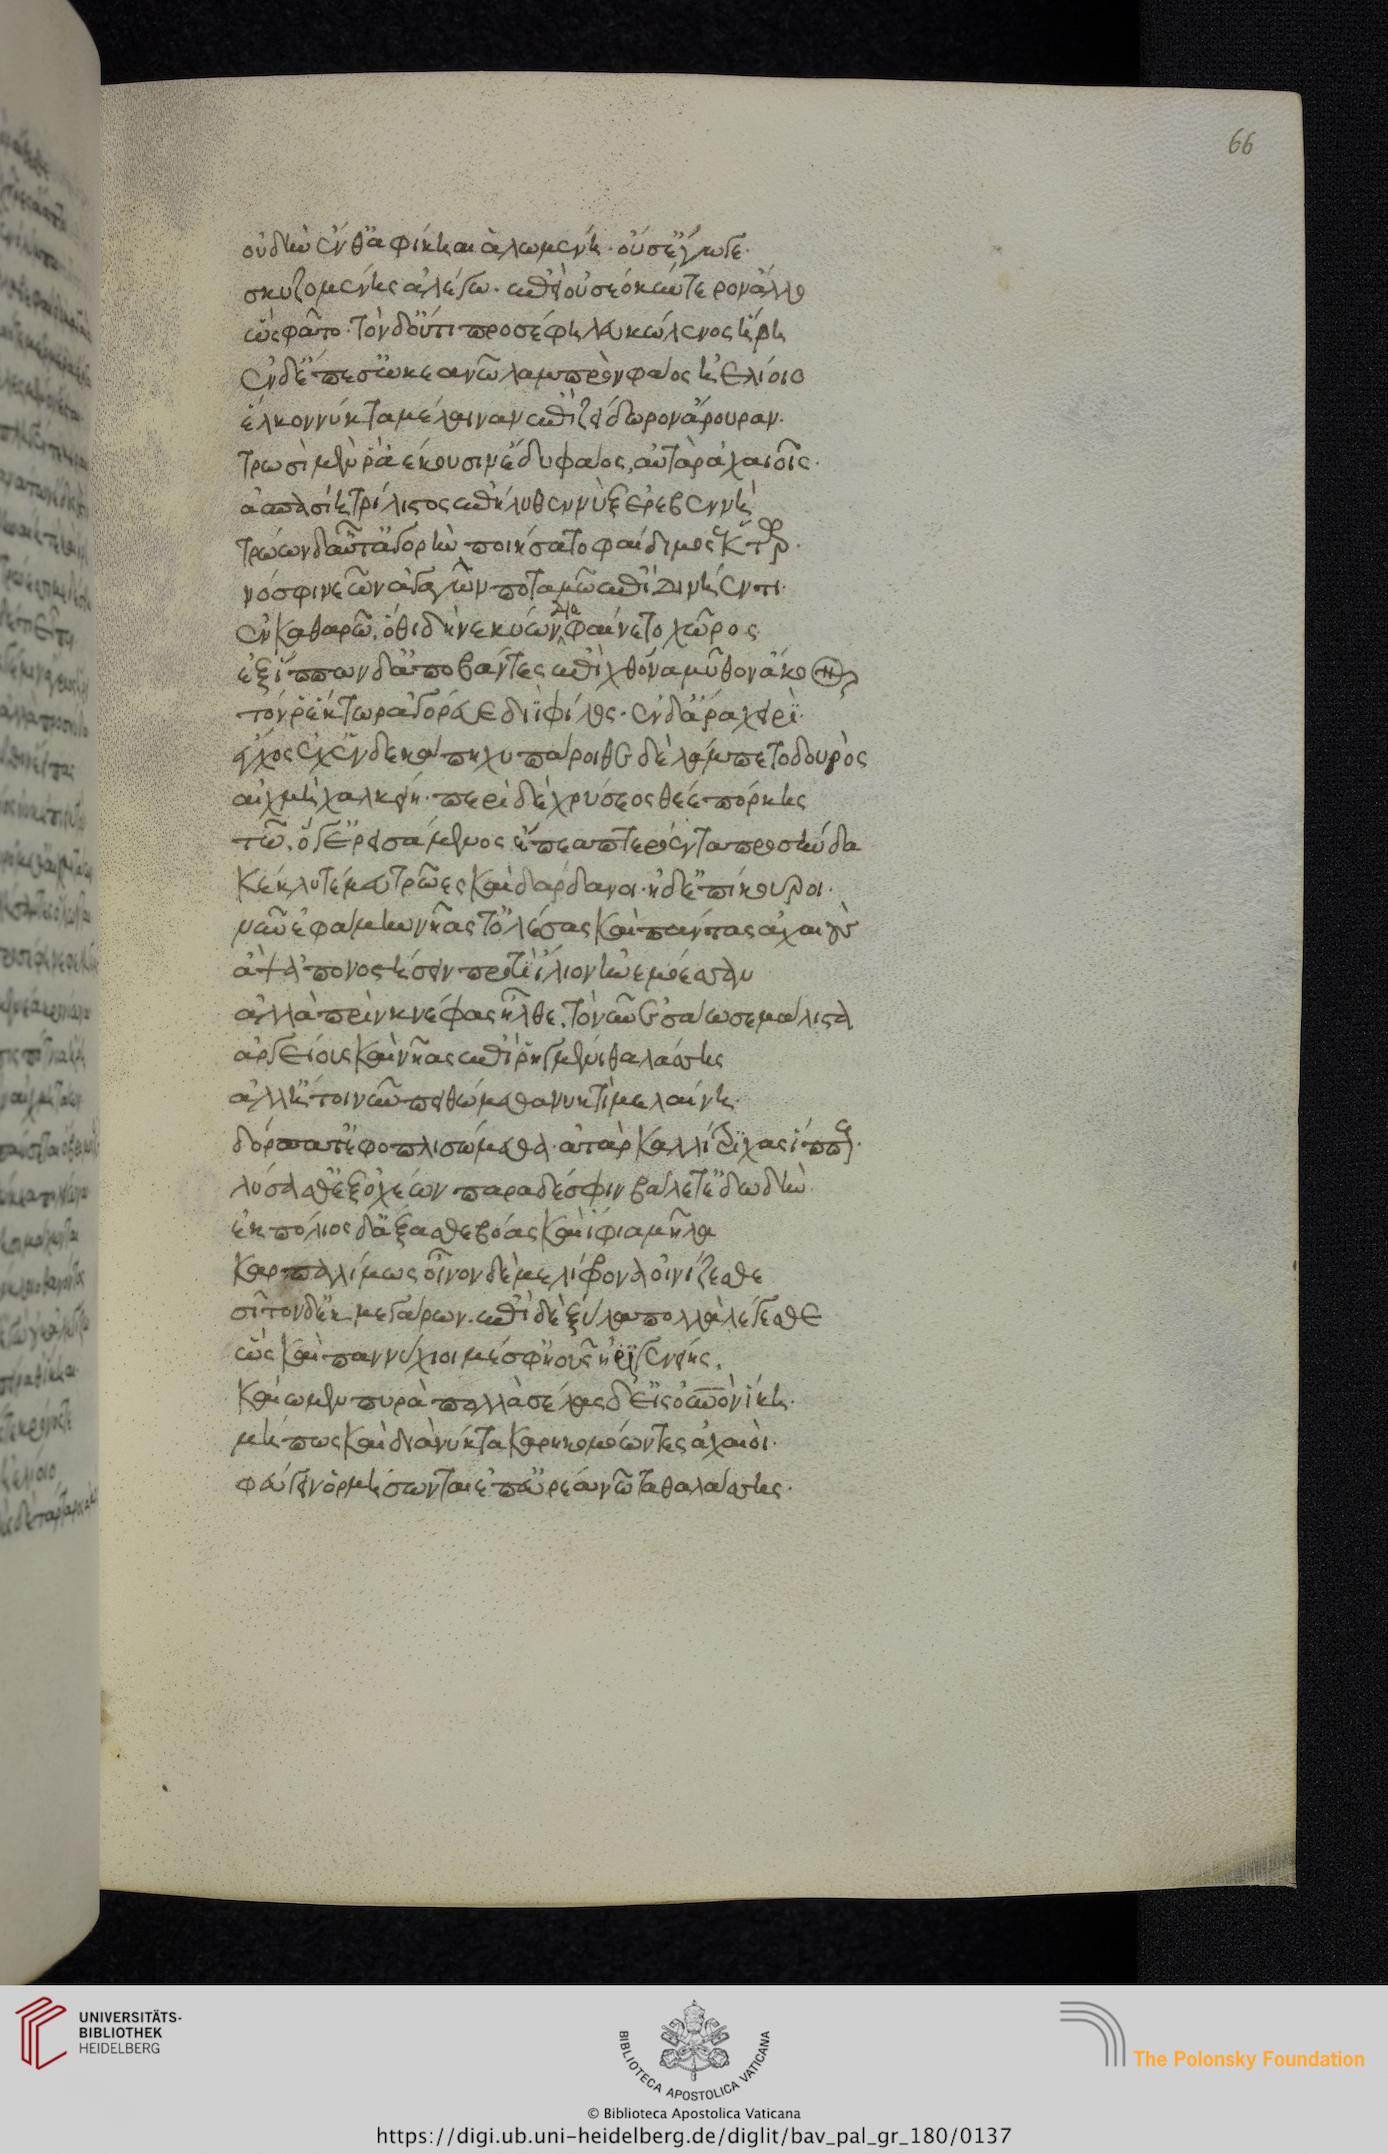 66
οὐδ' ἢν ἔνθ' ἀφίκηαι ἀλωμένη. οὔ σευ ἔγωγε
σκυζομένης ἀλέγω. ἐπεὶ οὐ σέο κύντερον ἄλλο
ὣς φάτο. τὸν δ' οὔτι προσέφη λευκώλενος ἥρη
ἐν δ' ἔπεσ' ὠκεανῶ λαμπρὸν φάος ἠελίοιο
ἕλκον νύκτα μέλαιναν ἐπὶ ζείδωρον ἄρουραν.
τρωσὶ μέν ῥ' ἀέκουσιν ἔδυ φάος, αὐτὰρ ἀχαιοῖς.
ἀσπασίη τρίλιστος ἐπήλυθε νὺξ ἐρεβεννή
τρώων δ' αὖτ' ἀγορὴν ποιήσατο φαίδιμος ἕκτωρ.
νόσφι νεῶν ἀγαγὼν ποταμῶ ἐπὶ δινήεντι.
ἐν καθαρῶ, ὅθι δὴ νεκύων διαφαίνετο χῶρος
ἐξ ἵππων δ' ἀποβάντες ἐπὶ χθόνα μῦθον ἄκουον
τόν ῥ' ἕκτωρ ἀγόρευε διῒ φίλος. ἐν δ' ἄρα χειρὶ
ἔγχος ἔχ' ἑνδεκάπηχυ πάροιθε δὲ λάμπετο δουρὸς
αἰχμὴ χαλκείη. περὶ δὲ χρύσεος θέε πόρκης
τῶ, ὅ γ' ἐρεισάμενος ἔπεα πτερόεντα προσηύδα
κέκλυτέ μευ τρῶες καὶ δάρδανοι ἠδ' ἐπίκουροι.
νῦν ἐφάμην νῆας τ' ὀλέσας καὶ πάντας ἀχαιοὺς
ἂψ ἀπονοστήσειν προτὶ ἴλιον ἠνεμόεσσαν
ἀλλὰ πρὶν κνέφας ἦλθε, τὸ νῦν ἐσάωσε μάλιστα
ἀργείους καὶ νῆας ἐπὶ ῥηγμῖνι θαλάσσης
ἀλλ' ἤτοι νῦν πειθώμεθα νυκτὶ μελαίνη.
δόρπα τ' ἐφοπλισώμεθα. ἀτὰρ καλλίτριχας ἵππους.
λύσαθ' ἐξ ὀχέων παρὰ δέ σφιν βάλετ' ἐδωδὴν
ἐκ πόλιος δ' ἄξασθε βόας καὶ ἴφια μῆλα
καρπαλίμως οἶνον δὲ μελίφρονα οἰνίζεσθε
σῖτον δ' ἐκ μεγάρων. ἐπὶ δὲ ξύλα πολλὰ λέγεσθε
ὥς κεν παννύχιοι μέσφ' ἠοῦς ἠριγενείης,
καίωμεν πυρὰ πολλὰ σέλας δ' εἰς οὐρανὸν ἵκη.
μή πως καὶ διὰ νύκτα καρηκομόωντες ἀχαιοὶ.
φεύγειν ὁρμήσωνται ἐπ' εὐρέα νῶτα θαλάσσης.
UNIVERSITÄTS-
BIBLIOTHEK
HEIDELBERG
BIBLIOTECA APOSTOLICA VATICANA
The Polonsky Foundation
© Biblioteca Apostolica Vaticana
https://digi.ub.uni-heidelberg.de/diglit/bav_pal_gr_180/0137